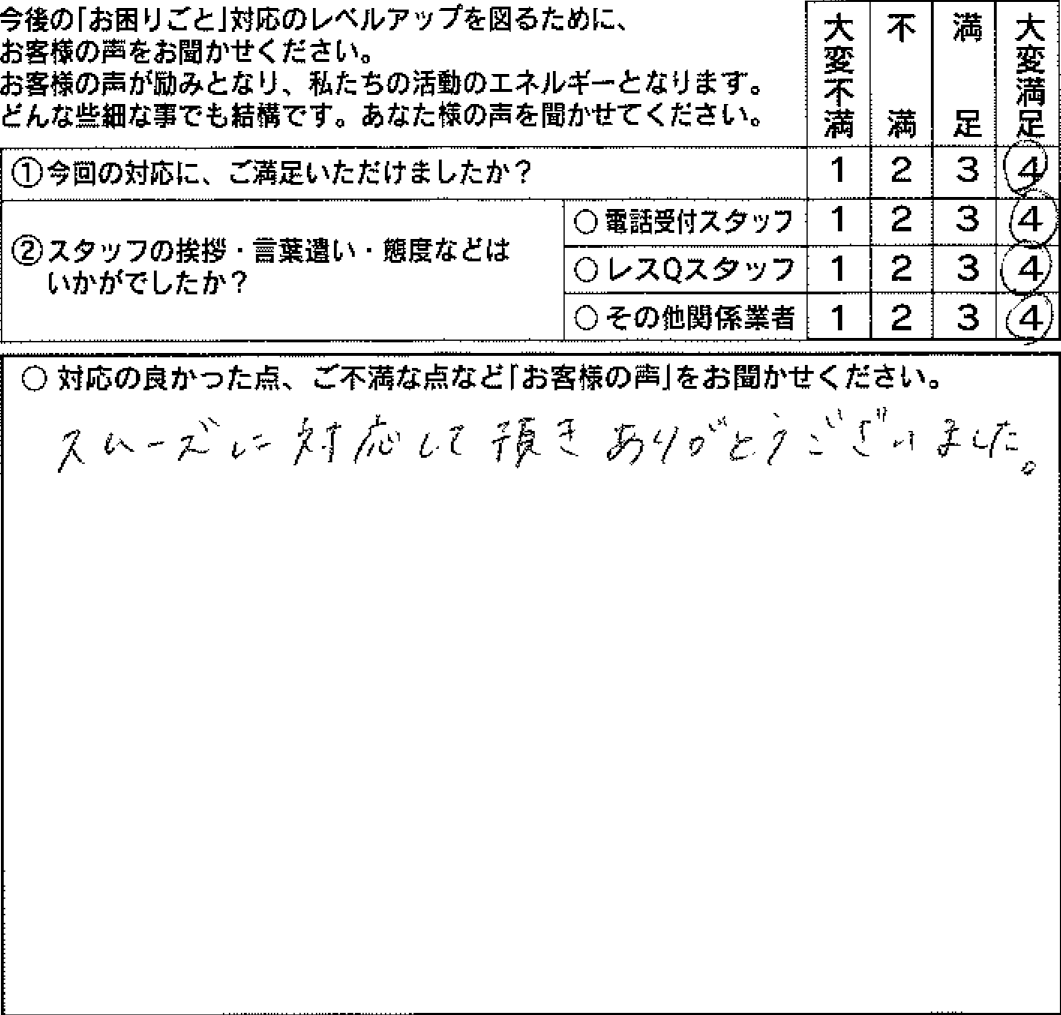 今後の「お困りごと」対応のレベルアップを図るために、
お客様の声をお聞かせください。
お客様の声が励みとなり、私たちの活動のエネルギーとなります。
どんな些細な事でも結構です。あなた様の声を聞かせてください。
大変不満 不満 満足 大変満足
①今回の対応に、ご満足いただけましたか？ 1 2 3 4
②スタッフの挨拶・言葉遣い・態度などは
いかがでしたか？
○電話受付スタッフ 1 2 3 4
○レスQスタッフ 1 2 3 4
○その他関係業者 1 2 3 4
○ 対応の良かった点、ご不満な点など「お客様の声」をお聞かせください。
スムーズに対応して頂きありがとうございました。